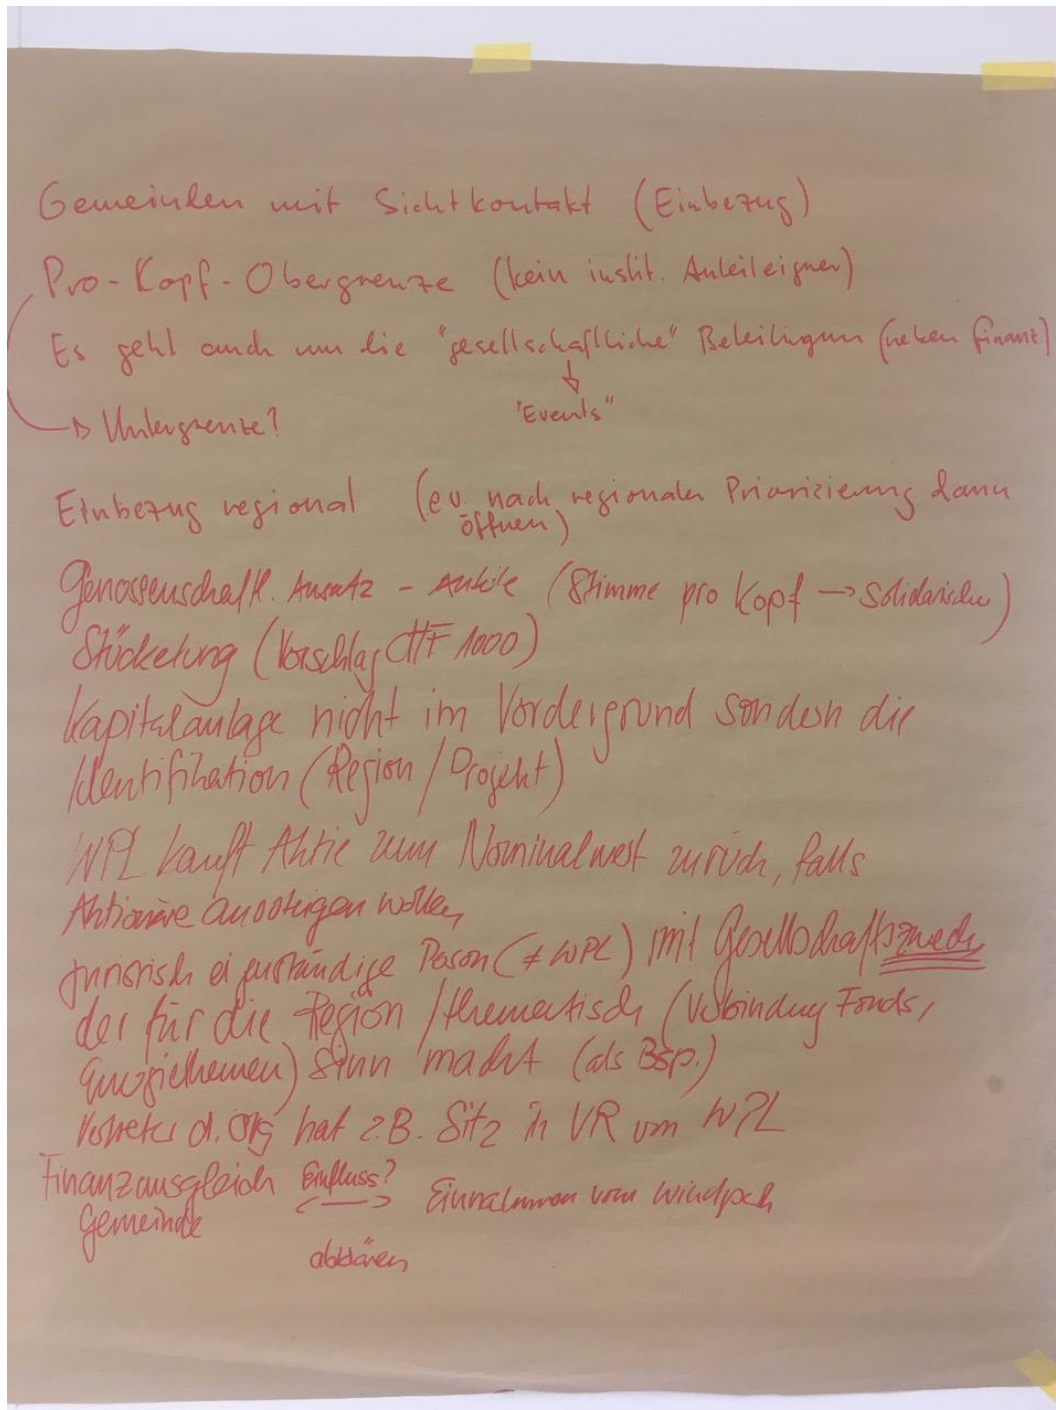 Gemeinden mit Sichtkontakt (Einbezug)
Pro-Kopf-Obergrenze (kein instit. Anteileigner)
Es geht auch um die "gesellschaftliche" Beteiligung (neben finanz)
↓
→ Untergrenze? "Events"
Einbezug regional (ev. nach regionaler Priorisierung dann
öffnen)
Genossenschaftl. Ansatz - (Stimme pro Kopf → Solidarischer)
Stückelung (Vorschlag CHF 1000)
Kapitalanlage nicht im Vordergrund sondern die
Identifikation (Region / Projekt)
WPL kauft Aktie zum Nominalwert zurück, falls
Aktionäre aussteigen wollen
juristisch eigenständige Person (≠ WPL) mit Gesellschaftszweck
der für die Region / thematisch (Verbindung Fonds,
Energiethemen) Sinn macht (als Bsp.)
Vertreter d. Org hat z.B. Sitz in VR von WPL
Finanzausgleich Einfluss? Einnahmen vom Windpark
Gemeinde
abklären